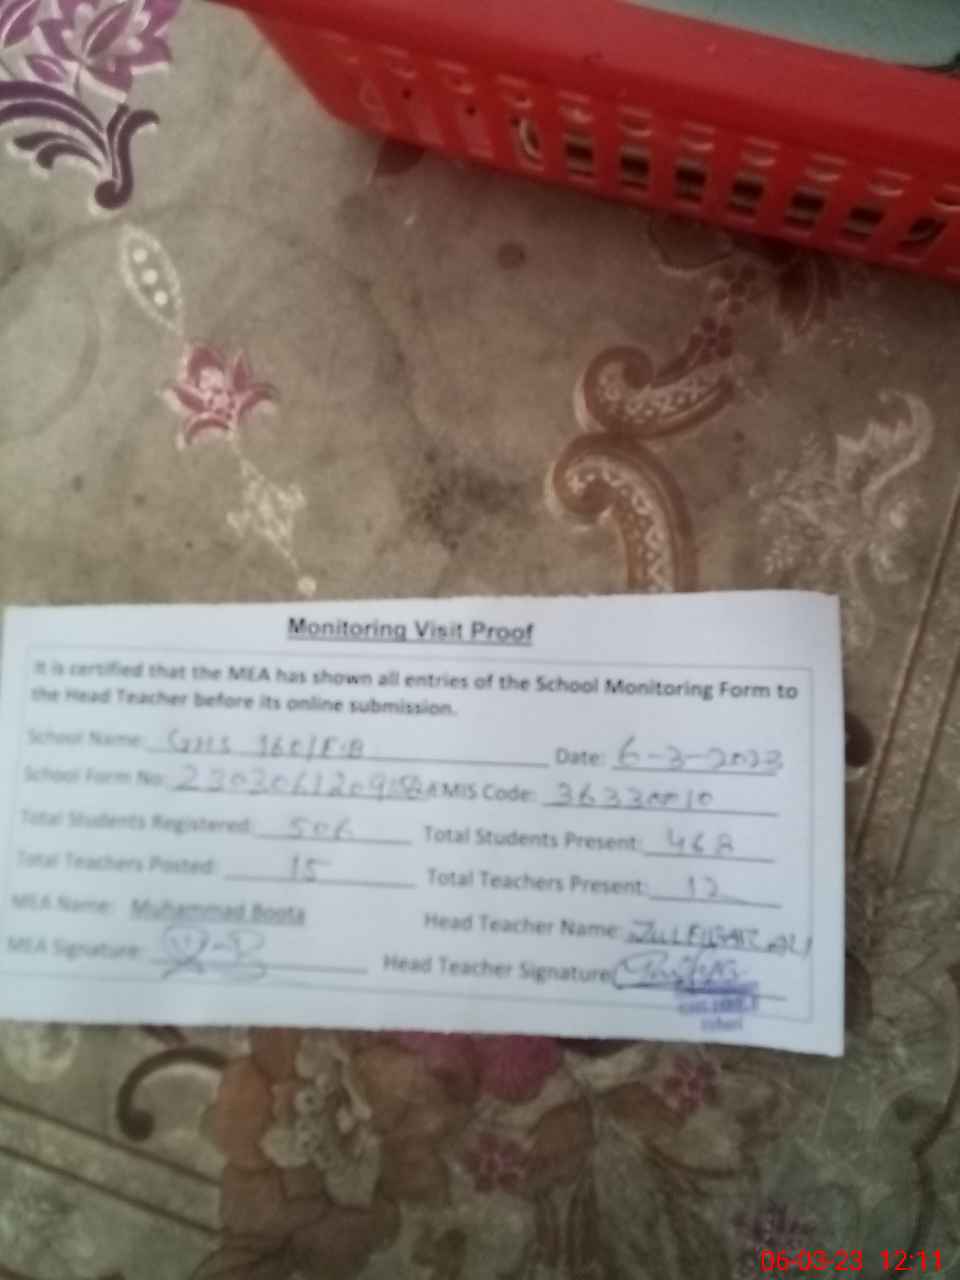 Monitoring Visit Proof
It is certified that the MEA has shown all entries of the School Monitoring Form to
the Head Teacher before its online submission.
School Name: GHS 360/E.B Date: 6-3-2023
School Form No: EMIS Code: 36330010
Total Students Registered: 506 Total Students Present: 468
Total Teachers Posted: 15 Total Teachers Present: 12
MEA Name: Muhammad Boota Head Teacher Name: ZULFIQAR ALI
MEA Signature: Head Teacher Signature
06-03-23 12:11